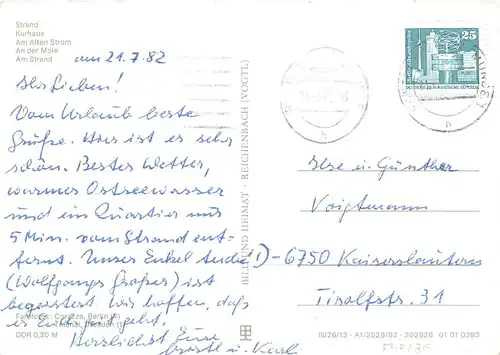 Strand
Kurhaus
Am Alten Strom
An der Mole
Am Strand
am 21.7.82
Ihr Lieben!
Vom Urlaub beste
Grüße. Hier ist es sehr
schön. Bestes Wetter,
warmes Ostseewasser
und ein Quartier nur
5 Min. vom Strand ent-
fernt. Unser Enkel
(Wolfgangs Großer) ist
begeistert. Wir hoffen, daß
es Euch gut geht.
Herzlichst Eure
u. Karli
DDR 0,20 M
BILD UND HEIMAT · REICHENBACH (VOGTL)
25
DEUTSCHE DEMOKRATISCHE REPUBLIK
Ilse u. Günther
Voigtmann
D-6750 Kaiserslautern
Tirolfstr. 31
III/26/13 · A1/2628/82 · 302826 01 01 0393